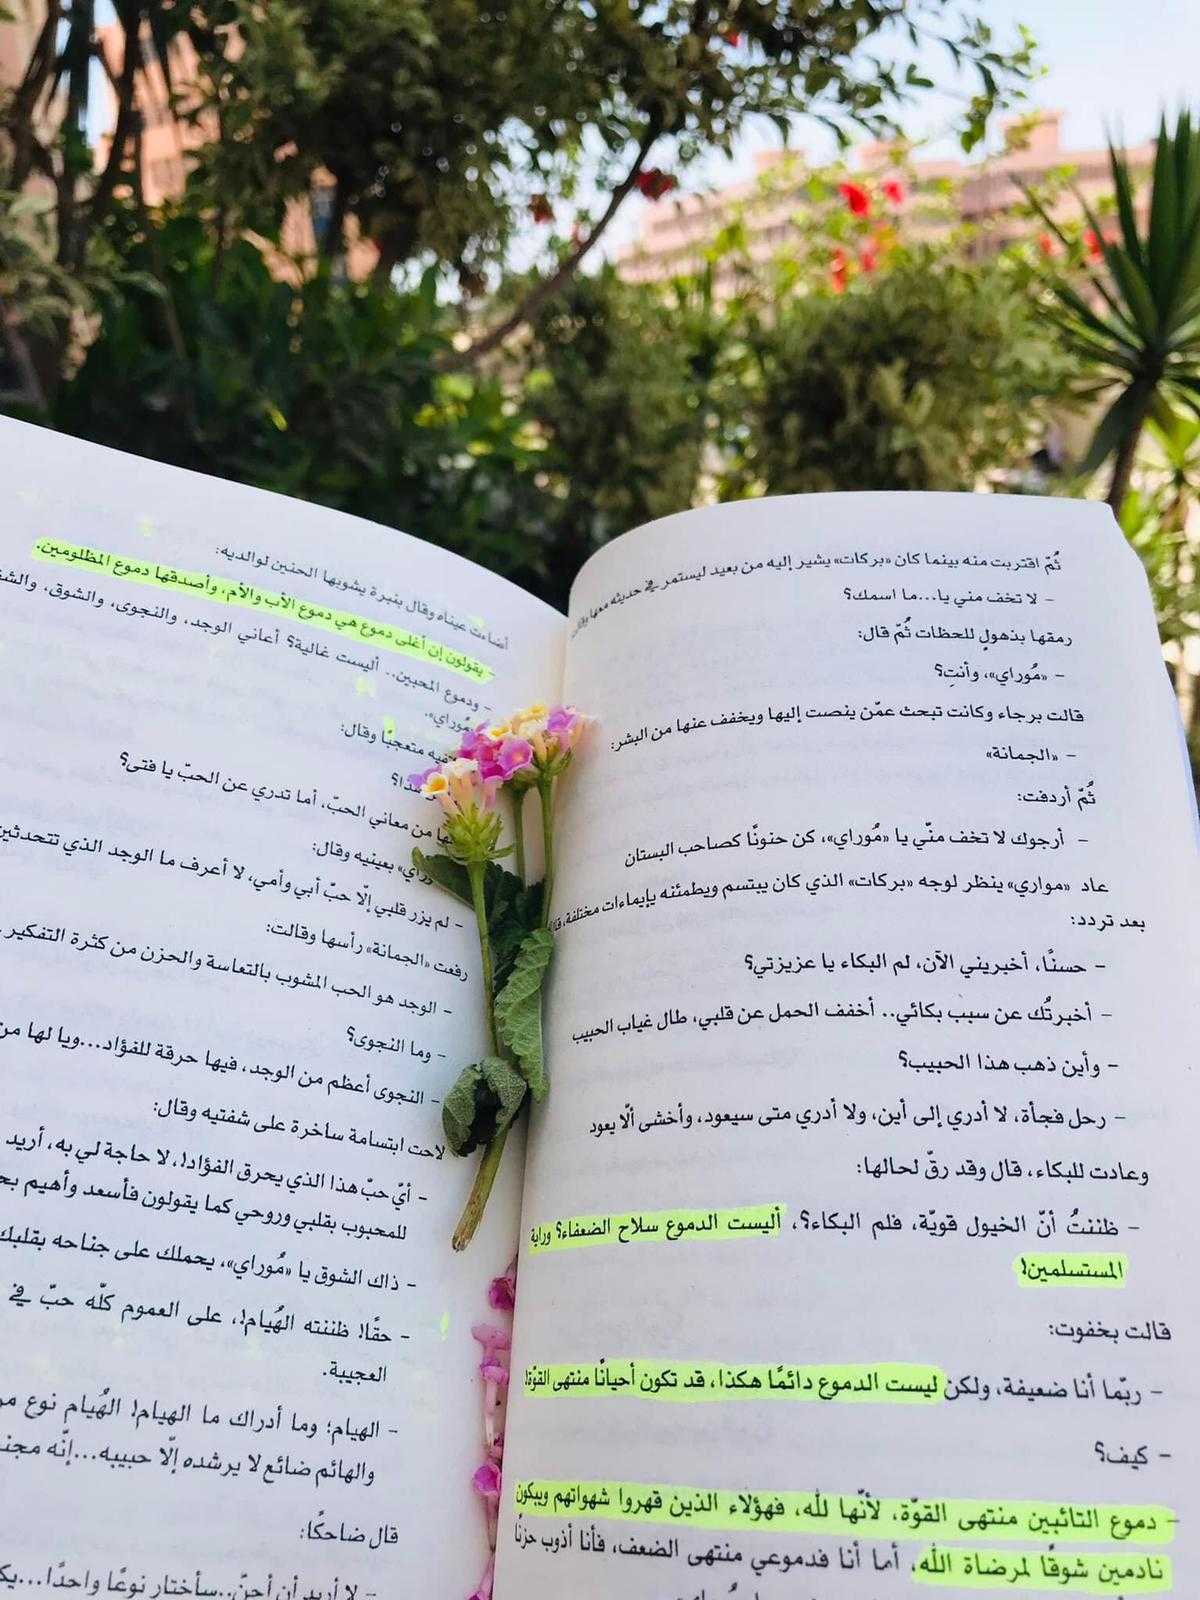 ثُمّ اقتربت منه بينما كان «بركات» يشير إليه من بعيد ليستمر في حديثه معها وقالت
- لا تخف مني يا...ما اسمك؟
رمقها بذهولٍ للحظات ثُمّ قال:
- «مُوراي»، وأنتِ؟
قالت برجاء وكانت تبحث عمّن ينصت إليها ويخفف عنها من البشر:
- «الجمانة»
ثُمّ أردفت:
- أرجوك لا تخف منّي يا «مُوراي»، كن حنونًا كصاحب البستان
عاد «مواري» ينظر لوجه «بركات» الذي كان يبتسم ويطمئنه بإيماءات مختلفة،
بعد تردد:
- حسنًا، أخبريني الآن، لم البكاء يا عزيزتي؟
- أخبرتُك عن سبب بكائي.. أخفف الحمل عن قلبي، طال غياب الحبيب
- وأين ذهب هذا الحبيب؟
- رحل فجأة، لا أدري إلى أين، ولا أدري متى سيعود، وأخشى ألّا يعود
وعادت للبكاء، قال وقد رقّ لحالها:
- ظننتُ أنّ الخيول قويّة، فلم البكاء؟، أليست الدموع سلاح الضعفاء؟ وراية
المستسلمين!
قالت بخفوت:
- ربّما أنا ضعيفة، ولكن ليست الدموع دائمًا هكذا، قد تكون أحيانًا منتهى القوّة!
- كيف؟
- دموع التائبين منتهى القوّة، لأنّها لله، فهؤلاء الذين قهروا شهواتهم ويبكون
نادمين شوقًا لمرضاة الله، أما أنا فدموعي منتهى الضعف، فأنا أذوب حزنًا
أضاءت عيناه وقال بنبرة يشوبها الحنين لوالديه:
- يقولون إن أغلى دموع هي دموع الأب والأم، وأصدقها دموع المظلومين.
- ودموع المحبين.. أليست غالية؟ أعاني الوجد، والنجوى، والشوق،
مُوراي».
فيه متعجبًا وقال:
هذا؟
من معاني الحبّ، أما تدري عن الحبّ يا فتى؟
بعينيه وقال:
- لم يزر قلبي إلّا حبّ أبي وأمي، لا أعرف ما الوجد الذي تتحدثين
رفعت «الجمانة» رأسها وقالت:
- الوجد هو الحب المشوب بالتعاسة والحزن من كثرة التفكير
- وما النجوى؟
- النجوى أعظم من الوجد، فيها حرقة للفؤاد...ويا لها من
لاحت ابتسامة ساخرة على شفتيه وقال:
- أيّ حبّ هذا الذي يحرق الفؤاد!، لا حاجة لي به، أريد
للمحبوب بقلبي وروحي كما يقولون فأسعد وأهيم
- ذاك الشوق يا «مُوراي»، يحملك على جناحه بقلبك
- حقًا! ظننته الهُيام!، على العموم كلّه حبّ في
العجيبة.
- الهيام؛ وما أدراك ما الهيام! الهُيام نوع من
والهائم ضائع لا يرشده إلّا حبيبه...إنّه
قال ضاحكًا:
- لا أريد أن أحنّ..سأختار نوعًا واحدًا